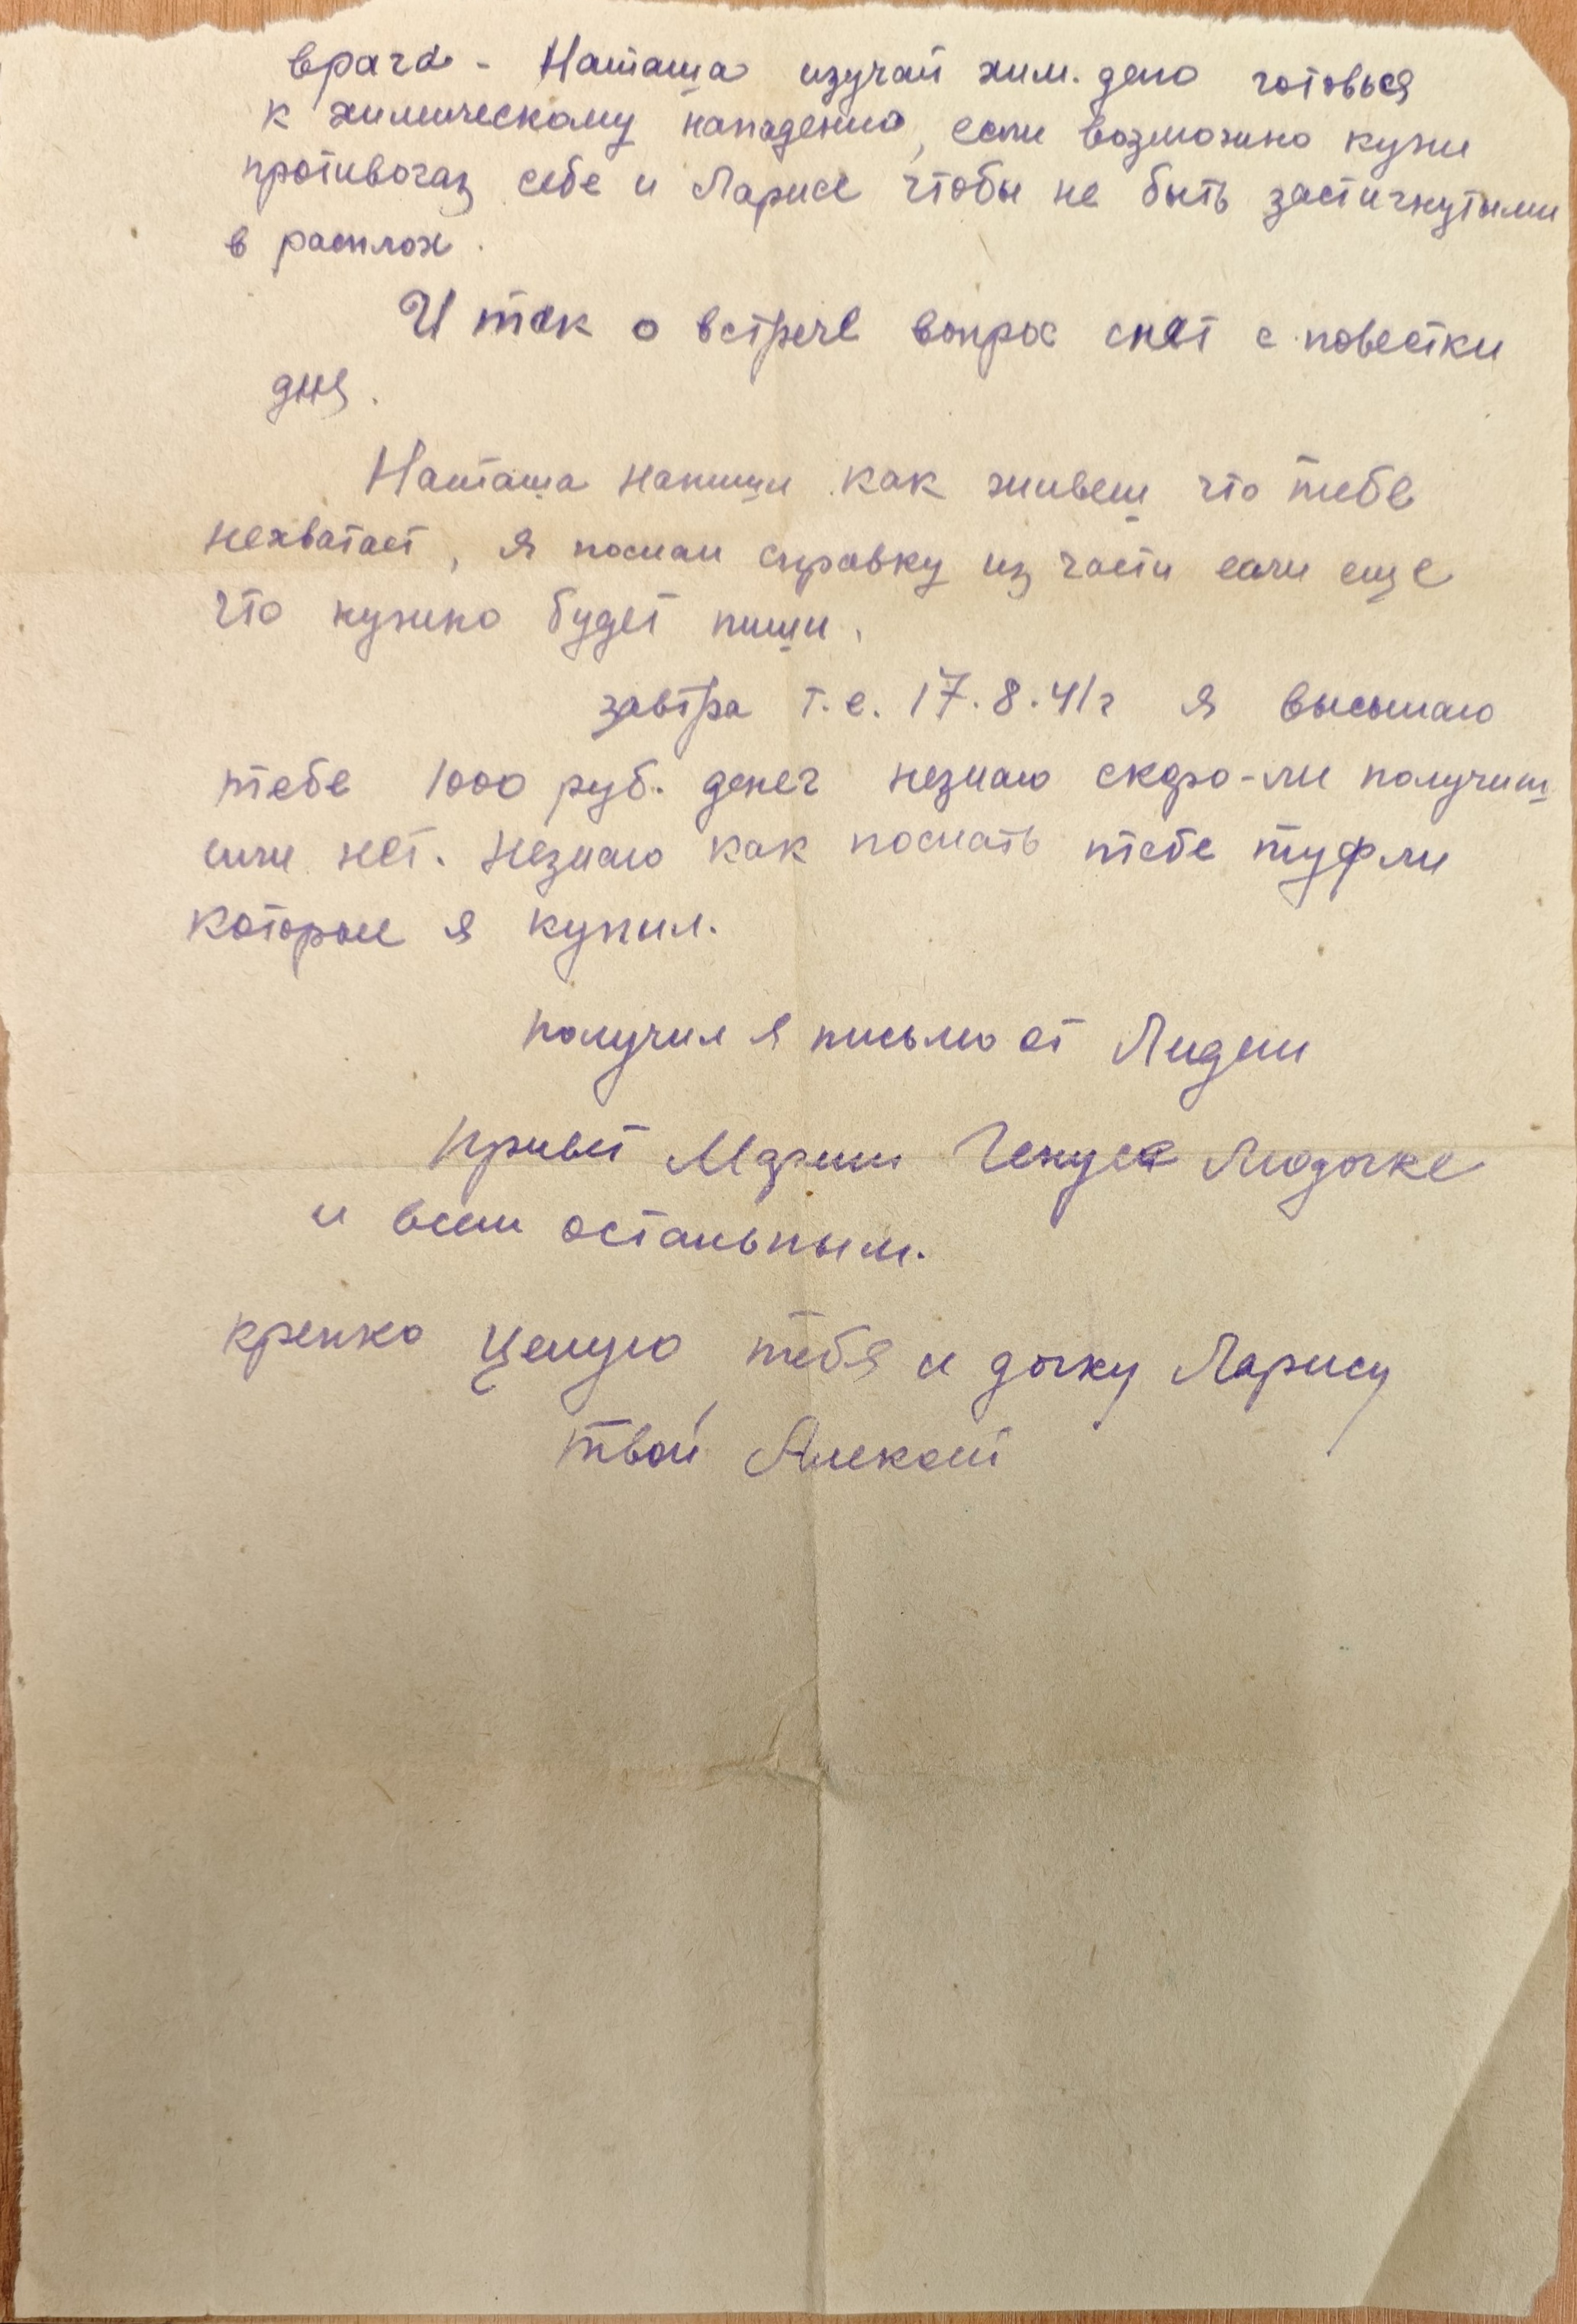 врага - Наташа изучай хим. дело готовься
к химическому нападению, если возможно купи
противогаз себе и Ларисе чтобы не быть застигнутыми
в расплох.
И так о встрече вопрос снят с повестки
дня.
Наташа напиши как живеш что тебе
нехватает, я послал справку из части если еще
что нужно будет пиши.
завтра т.е. 17.8.41г я высылаю
тебе 1000 руб. денег незнаю скоро-ли получиш
или нет. Незнаю как послать тебе туфли
которые я купил.
Получил я письмо от Лидии
Привет Марии Людочке
и всем остальным.
крепко целую тебя и дочку Ларису
твой Алексей